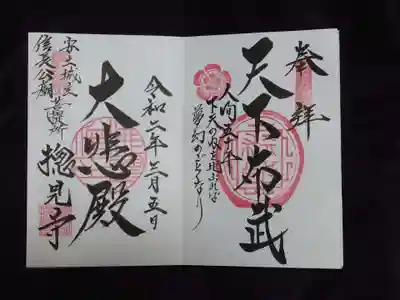 奉拝
天下布武
人间五十年
下天の内を比ぶれば
夢幻のごとくなり
令和二年三月五日
大悲殿
安土城址
信長公廟
菩提所
摠見寺